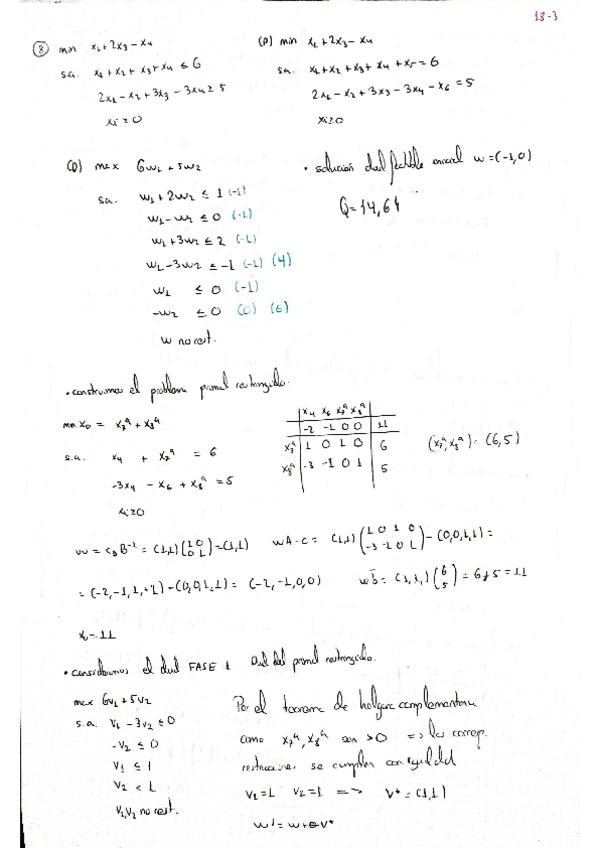 13-3
⑧ min x₁+2x₃-x₄
s.a. x₁+x₂+x₃+x₄ ≤ 6
2x₁-x₂+3x₃-3x₄ ≥ 5
xᵢ ≥ 0
(P) min x₁+2x₃-x₄
s.a. x₁+x₂+x₃+x₄+x₅=6
2x₁-x₂+3x₃-3x₄-x₆=5
xᵢ≥0
(D) max 6w₁+5w₂
s.a. w₁+2w₂ ≤ 1 (-1)
w₁-w₂ ≤ 0 (-1)
w₁+3w₂ ≤ 2 (-1)
w₁-3w₂ ≤ -1 (-1) (4)
w₁ ≤ 0 (-1)
-w₂ ≤ 0 (0) (6)
w no rest.
• solución dual factible inicial w=(-1,0)
Q=14,64
• construimos el problema primal restringido.
min x₀ = x₇ᵃ+x₈ᵃ
s.a. x₄ + x₇ᵃ = 6
-3x₄ - x₆ + x₈ᵃ = 5
xᵢ≥0
x₄ x₆ x₇ᵃ x₈ᵃ
-2 -1 0 0 11
x₇ᵃ 1 0 1 0 6
x₈ᵃ -3 -1 0 1 5
(x₇ᵃ,x₈ᵃ)=(6,5)
w = c_B B⁻¹ = (1,1) (1 0 / 0 1) = (1,1) wA-c = (1,1) (1 0 1 0 / -3 -1 0 1) - (0,0,1,1) =
= (-2,-1,1,1)-(0,0,1,1) = (-2,-1,0,0) wb̄ = (1,1) (6 / 5) = 6+5 = 11
x₀=11
• consideramos el dual FASE 1 Dual del primal restringido.
max 6v₁+5v₂
s.a. v₁-3v₂ ≤ 0
-v₂ ≤ 0
v₁ ≤ 1
v₂ ≤ 1
v₁,v₂ no rest.
Por el teorema de holgura complementaria
como x₇ᵃ, x₈ᵃ son >0 => las corresp.
restricciones se cumplen con igualdad
v₁=1 v₂=1 => v* = (1,1)
w' = w+θv*